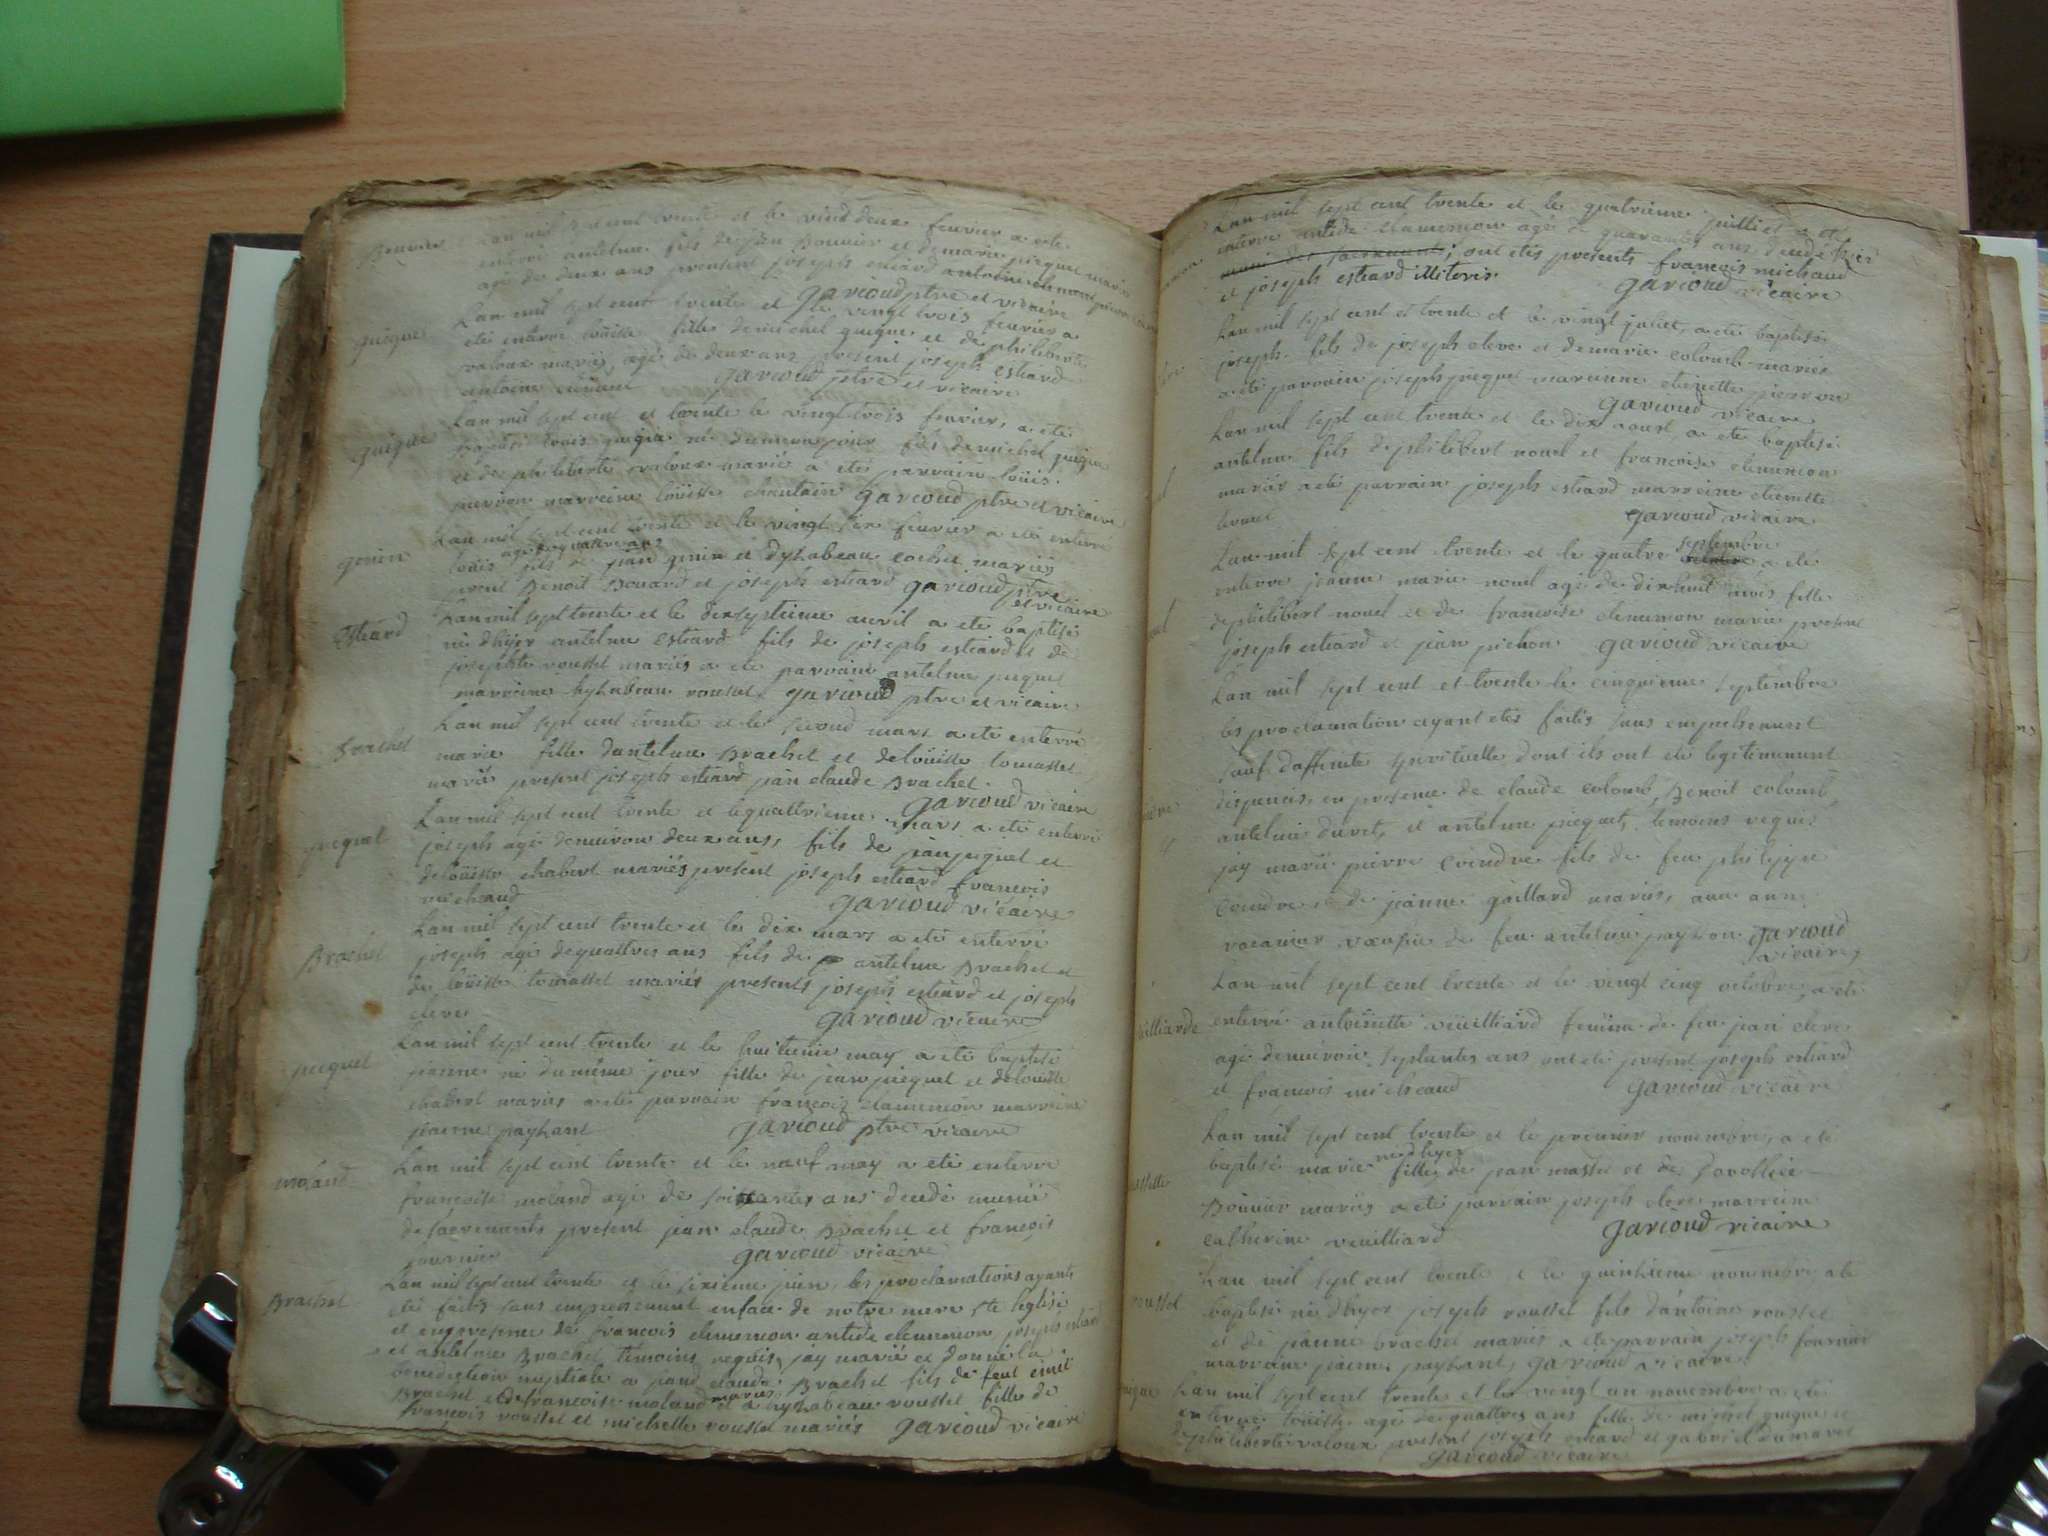 Bouvier Lan mil sept cent trente et le vint deux feuvrier a ete
enterré antelme fils de jean Bouvier et de marie picquet mariés
agé de deux ans present joseph estiard antoine
garioud ptre et vicaire
guigue Lan mil sept cent trente et le vingt trois feuvrier a
eté enterré loüise fille de michel guigue et de philiberte
valoux mariés, agé de deux ans present joseph estiard
antoine garioud ptre et vicaire
guigue Lan mil sept cent et trente le vingt trois feuvrier, a eté
louis guigue né du meme jour fils de michel guigue
et de philiberte valoux mariés a eté parrain loüis
marreine loüise garioud ptre et vicaire
genin Lan mil sept cent trente et le vingt six feuvrier a eté enterré
agé de quattre ans
loüis fils de jean genin et dysabeau cochet mariés
present Benoit Bouard et joseph estiard garioud ptre
et vicaire
Estiard Lan mil sept trente et le dixseptieme avril a ete baptisé
né dhyer antelme estiard fils de joseph estiard et de
josephte roussel mariés a eté parrain antelme picquet
marreine hysabeau roussel garioud ptre et vicaire
Brachet Lan mil sept cent trente et le second mars a eté enterré
marie fille dantelme Brachet et de loüise tomasset
mariés present joseph estiard jean claude Brachet
garioud vicaire
picquet Lan mil sept cent trente et le quattrieme mars a eté enterré
joseph agé denuiron deux ans, fils de jean picquet et
de loüise chabert mariés present joseph estiard francois
micheaud garioud vicaire
Brachet Lan mil sept cent trente et le dix mars a eté enterré
joseph agé de quattres ans fils de antelme Brachet et
de loüise tomasset mariés presents joseph estiard et joseph
cleret garioud vicaire
picquet Lan mil sept cent trente et le huitieme may a eté baptisé
jeanne né du même jour fille de jean picquet et de loüise
chabert mariés a eté parrain francois clemencon marreine
jeanne payhant garioud ptre vicaire
moland Lan mil sept cent trente et le neuf may a eté enterré
francoise moland agé de soixantes ans decedé munié
de sacrements present jean claude Brachet et francois
fournier garioud vicaire
Brachet Lan mil sept cent trente et le sixieme juin, les proclamations ayants
eté faites sans empechement enface de notre mere ste leglise
et en presence de francois clemencon antide clemencon joseph estiard
et antelme Brachet temoins requis, jay marié et donné la
benediction nuptiale a jean claude Brachet fils de feut
Brachet et de francoise moland mariés et a hysabeau roussel fille de
francois roussel et michelle roussel mariés garioud vicaire
Lan mil sept cent trente et le quatrieme juilliet a eté
enterré antide clemencon agé de quarantes ans decedé hier
muni des sacrements, ont étés presents francois michaud
et joseph estiard illiteris garioud vicaire
Lan mil sept cent et trente et le vingt juliet, a eté baptisé
joseph fils de joseph clere et de marie colomb mariés
a eté parrain joseph picquet marenne etienette pierron
garioud vicaire
Lan mil sept cent trente et le dix aoust a ete baptisé
antelme fils de philibert nouel et francoise clemencon
mariés a eté parrain joseph estiard marreine etienette
garioud vicaire
Lan mil sept cent trente et le quatre septembre a eté
enterré jeanne marie nouel agé de dixhuit mois fille
de philibert nouel et de francoise clemencon mariés present
joseph estiard et jean pichon garioud vicaire
Lan mil sept cent et trente le cinquieme septembre
les proclamation ayant etés faites sans empechement
sauf daffinité spirituelle dont ils ont eté legitimement
dispensés, en presence de claude colomb, Benoit colomb,
antelme duret, et antelme picquet, temoins requis
jay marié pierre coindre fils de feu philippe
coindre et de jeanne gaillard mariés, avec anne
vacanier vesfue de feu antelme payson garioud
vicaire
villiarde Lan mil sept cent trente et le vingt cinq octobre, a eté
enterré antoinette vieilliard femme de feu jean clere
agé denuiron septantes ans, ont eté present joseph estiard
et francois micheaud garioud vicaire
Lan mil sept cent trente et le premier novembre, a eté
né dhyer
baptisé marie fille de jean masset et de Dorothée
Bouvier mariés a eté parrain joseph clere marreine
catherine vieuilliard garioud vicaire
roussel Lan mil sept cent trente et le quinzieme novembre a été
baptisé né dhyer joseph roussel fils dantoine roussel
et de jeanne brachet mariés a eté parrain joseph fournier
marraine jeanne payhant, garioud vicaire
guigue Lan mil sept cent trente et le vingt un novembre a eté
enterré loüise agé de quattres ans fille de michel guigue et
philiberte valoux present joseph estiard et gabriel dumaret
garioud vicaire